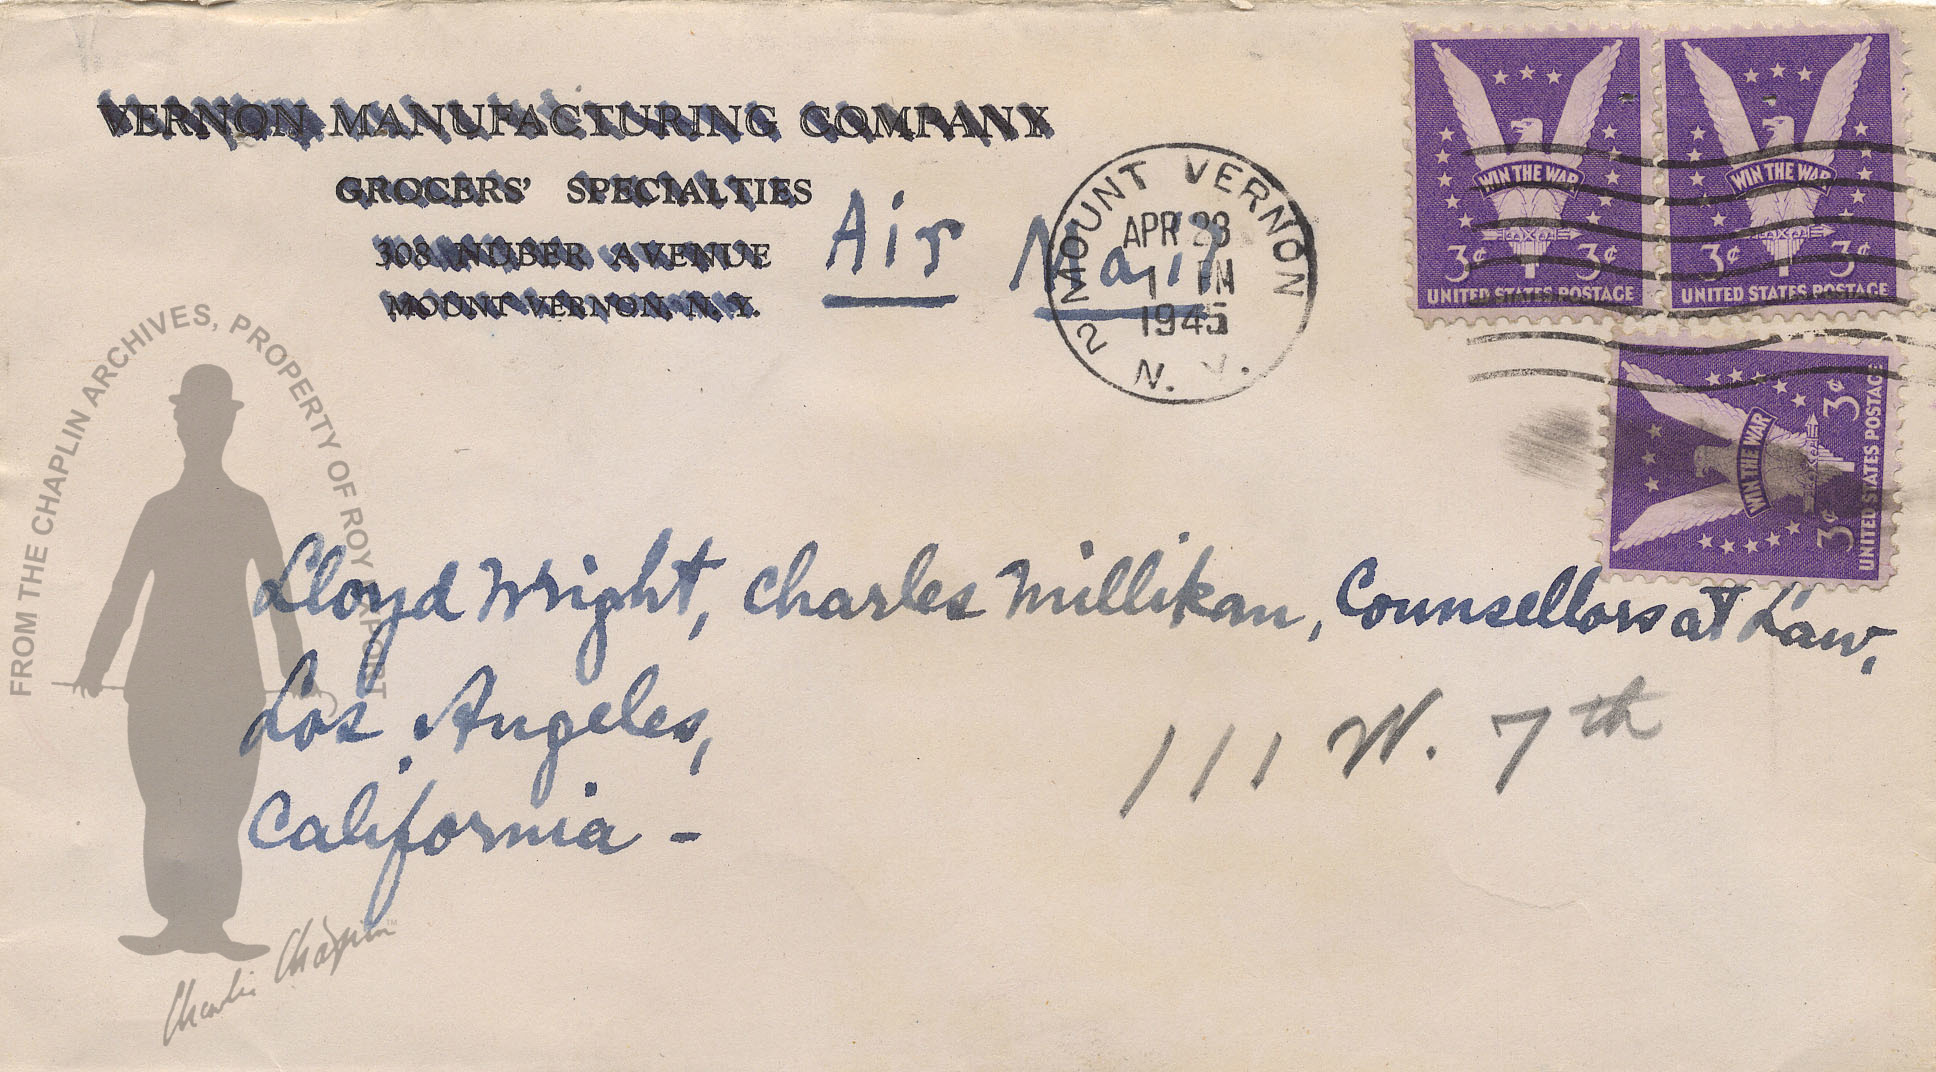 VERNON MANUFACTURING COMPANY
GROCERS' SPECIALTIES
308 NUBER AVENUE
MOUNT VERNON, N. Y.
Air Mail
MOUNT VERNON
APR 23
1 PM
1945
2
N. Y.
WIN THE WAR
3¢ 3¢
UNITED STATES POSTAGE
WIN THE WAR
3¢ 3¢
UNITED STATES POSTAGE
WIN THE WAR
3¢ 3¢
UNITED STATES POSTAGE
Lloyd Wright, Charles Millikan, Counsellors at Law,
Los Angeles,
California -
111 W. 7th
FROM THE CHAPLIN ARCHIVES, PROPERTY OF ROY
Charlie Chaplin™